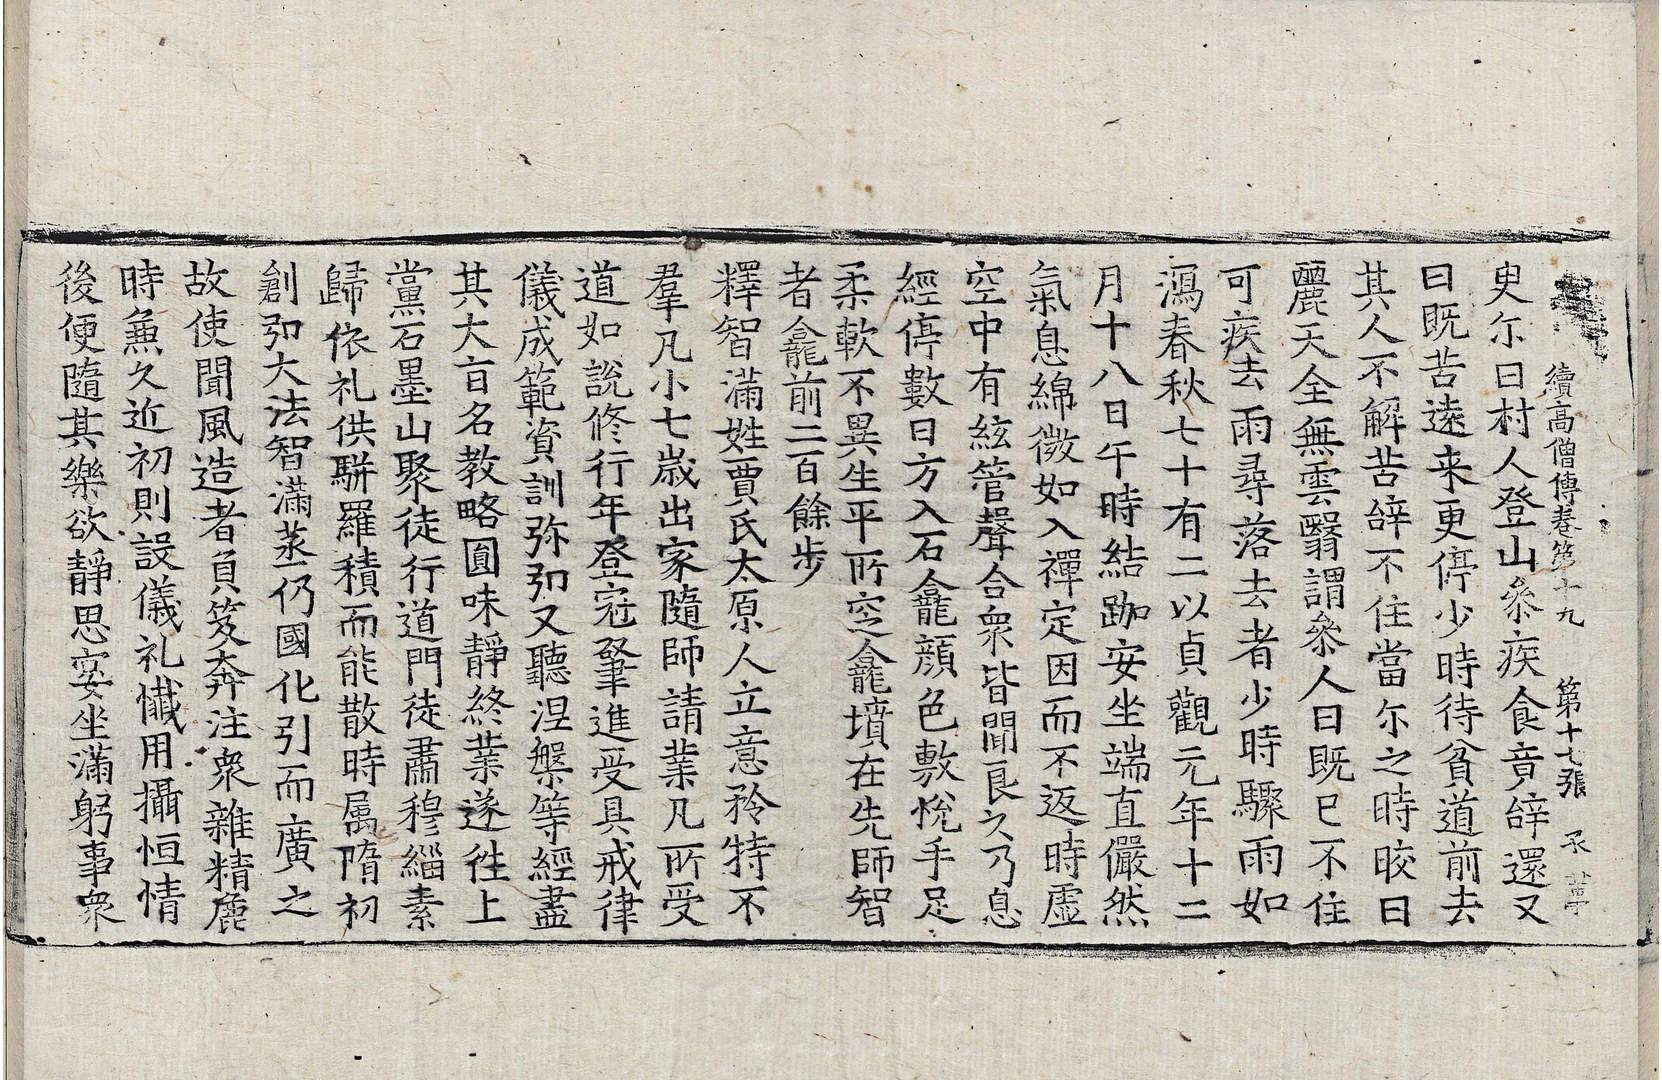 續高僧傳卷第十九 第十七張 承
臾尒曰村人登山叅疾食竟辝還又
曰既苦遠来更停少時待貧道前去
其人不解苦辝不住當尒之時晈日
麗天全無雲翳謂叅人曰既已不住
可疾去雨尋落去者少時驟雨如
瀉春秋七十有二以貞觀元年十二
月十八日午時結跏安坐端直儼然
氣息綿微如入禪定因而不返時虛
空中有絃管聲合衆皆聞良久乃息
經停數日方入石龕顔色敷悅手足
柔軟不異生平所窆龕墳在先師智
者龕前二百餘步
釋智滿姓賈氏太原人立意矜特不
羣凡小七歲出家隨師請業凡所受
道如說修行年登冠肇進受具戒律
儀成範資訓弥弘又聽涅槃等經盡
其大旨名教略圓味靜終業遂徃上
黨石墨山聚徒行道門徒肅穆緇素
歸依礼供駢羅積而能散時属隋初
創弘大法智滿蒸仍國化引而廣之
故使聞風造者負笈奔注衆雜精麁
時兼久近初則設儀礼懺用攝恒情
後便隨其樂欲靜思宴坐滿躬事衆